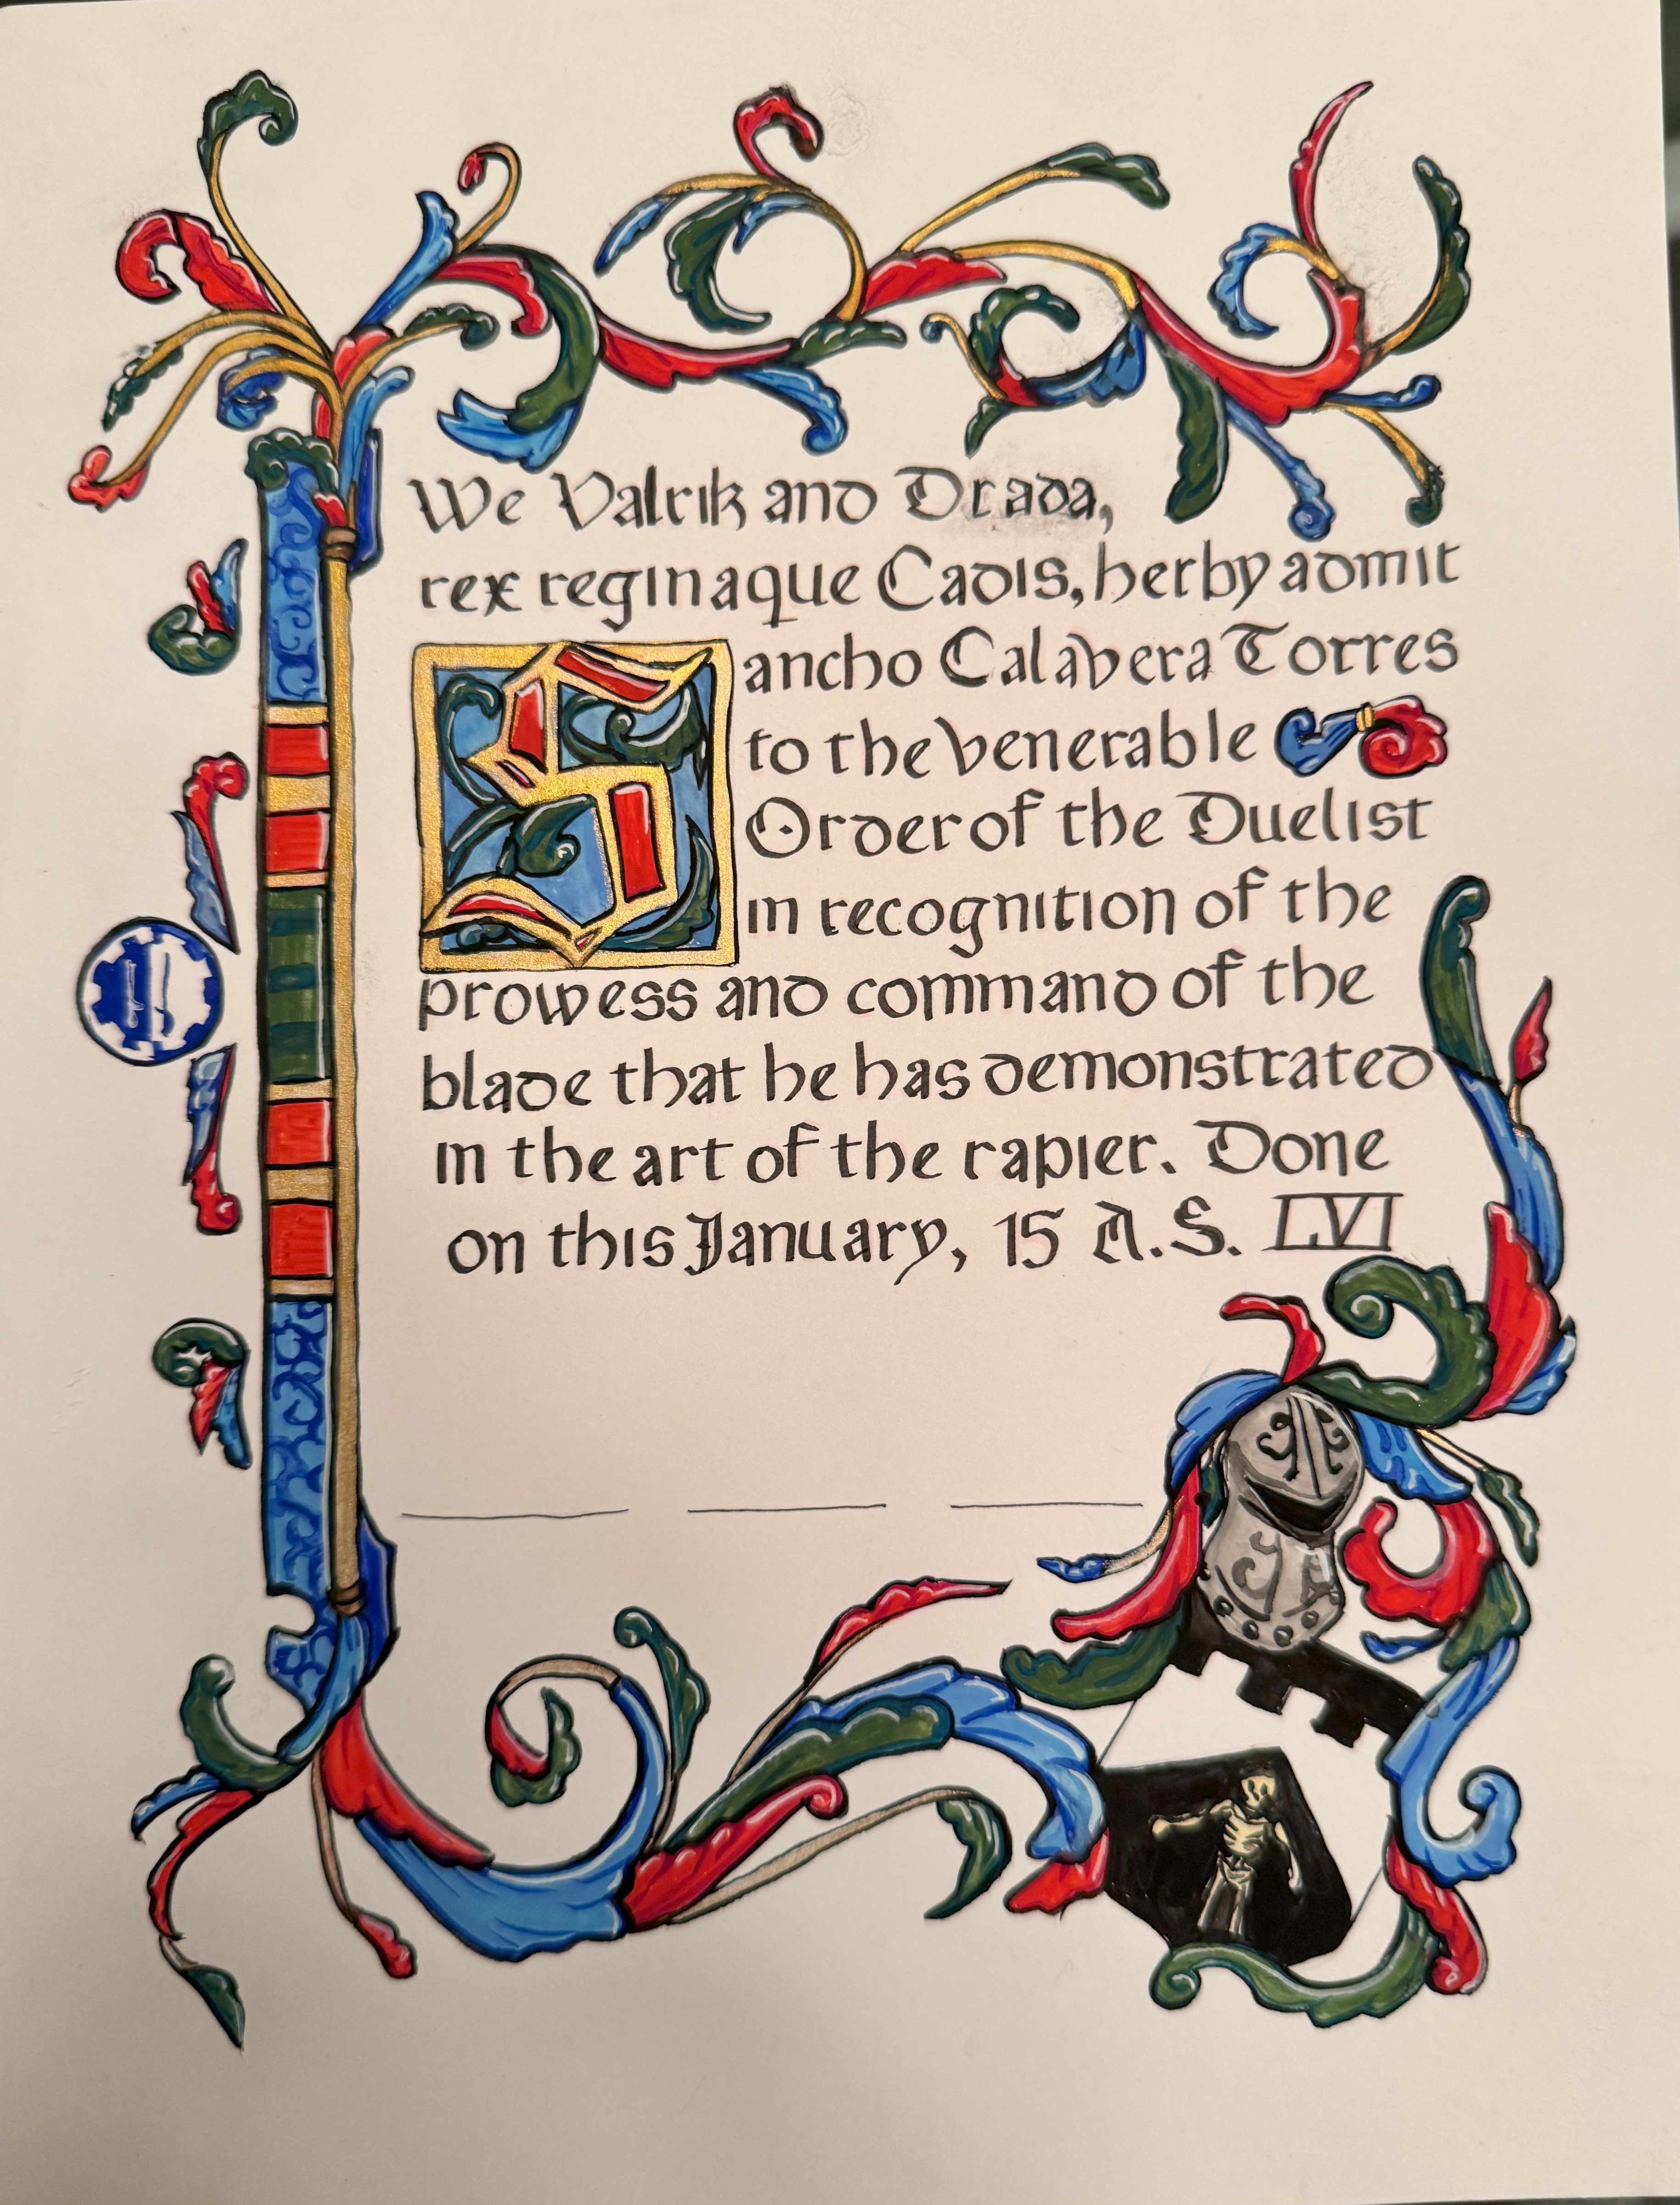 We Valrik and Drada,
rex reginaque Cadis, herby admit
Sancho Calavera Torres
to the venerable
Order of the Duelist
in recognition of the
prowess and command of the
blade that he has demonstrated
in the art of the rapier. Done
on this January, 15 A.S. LVI